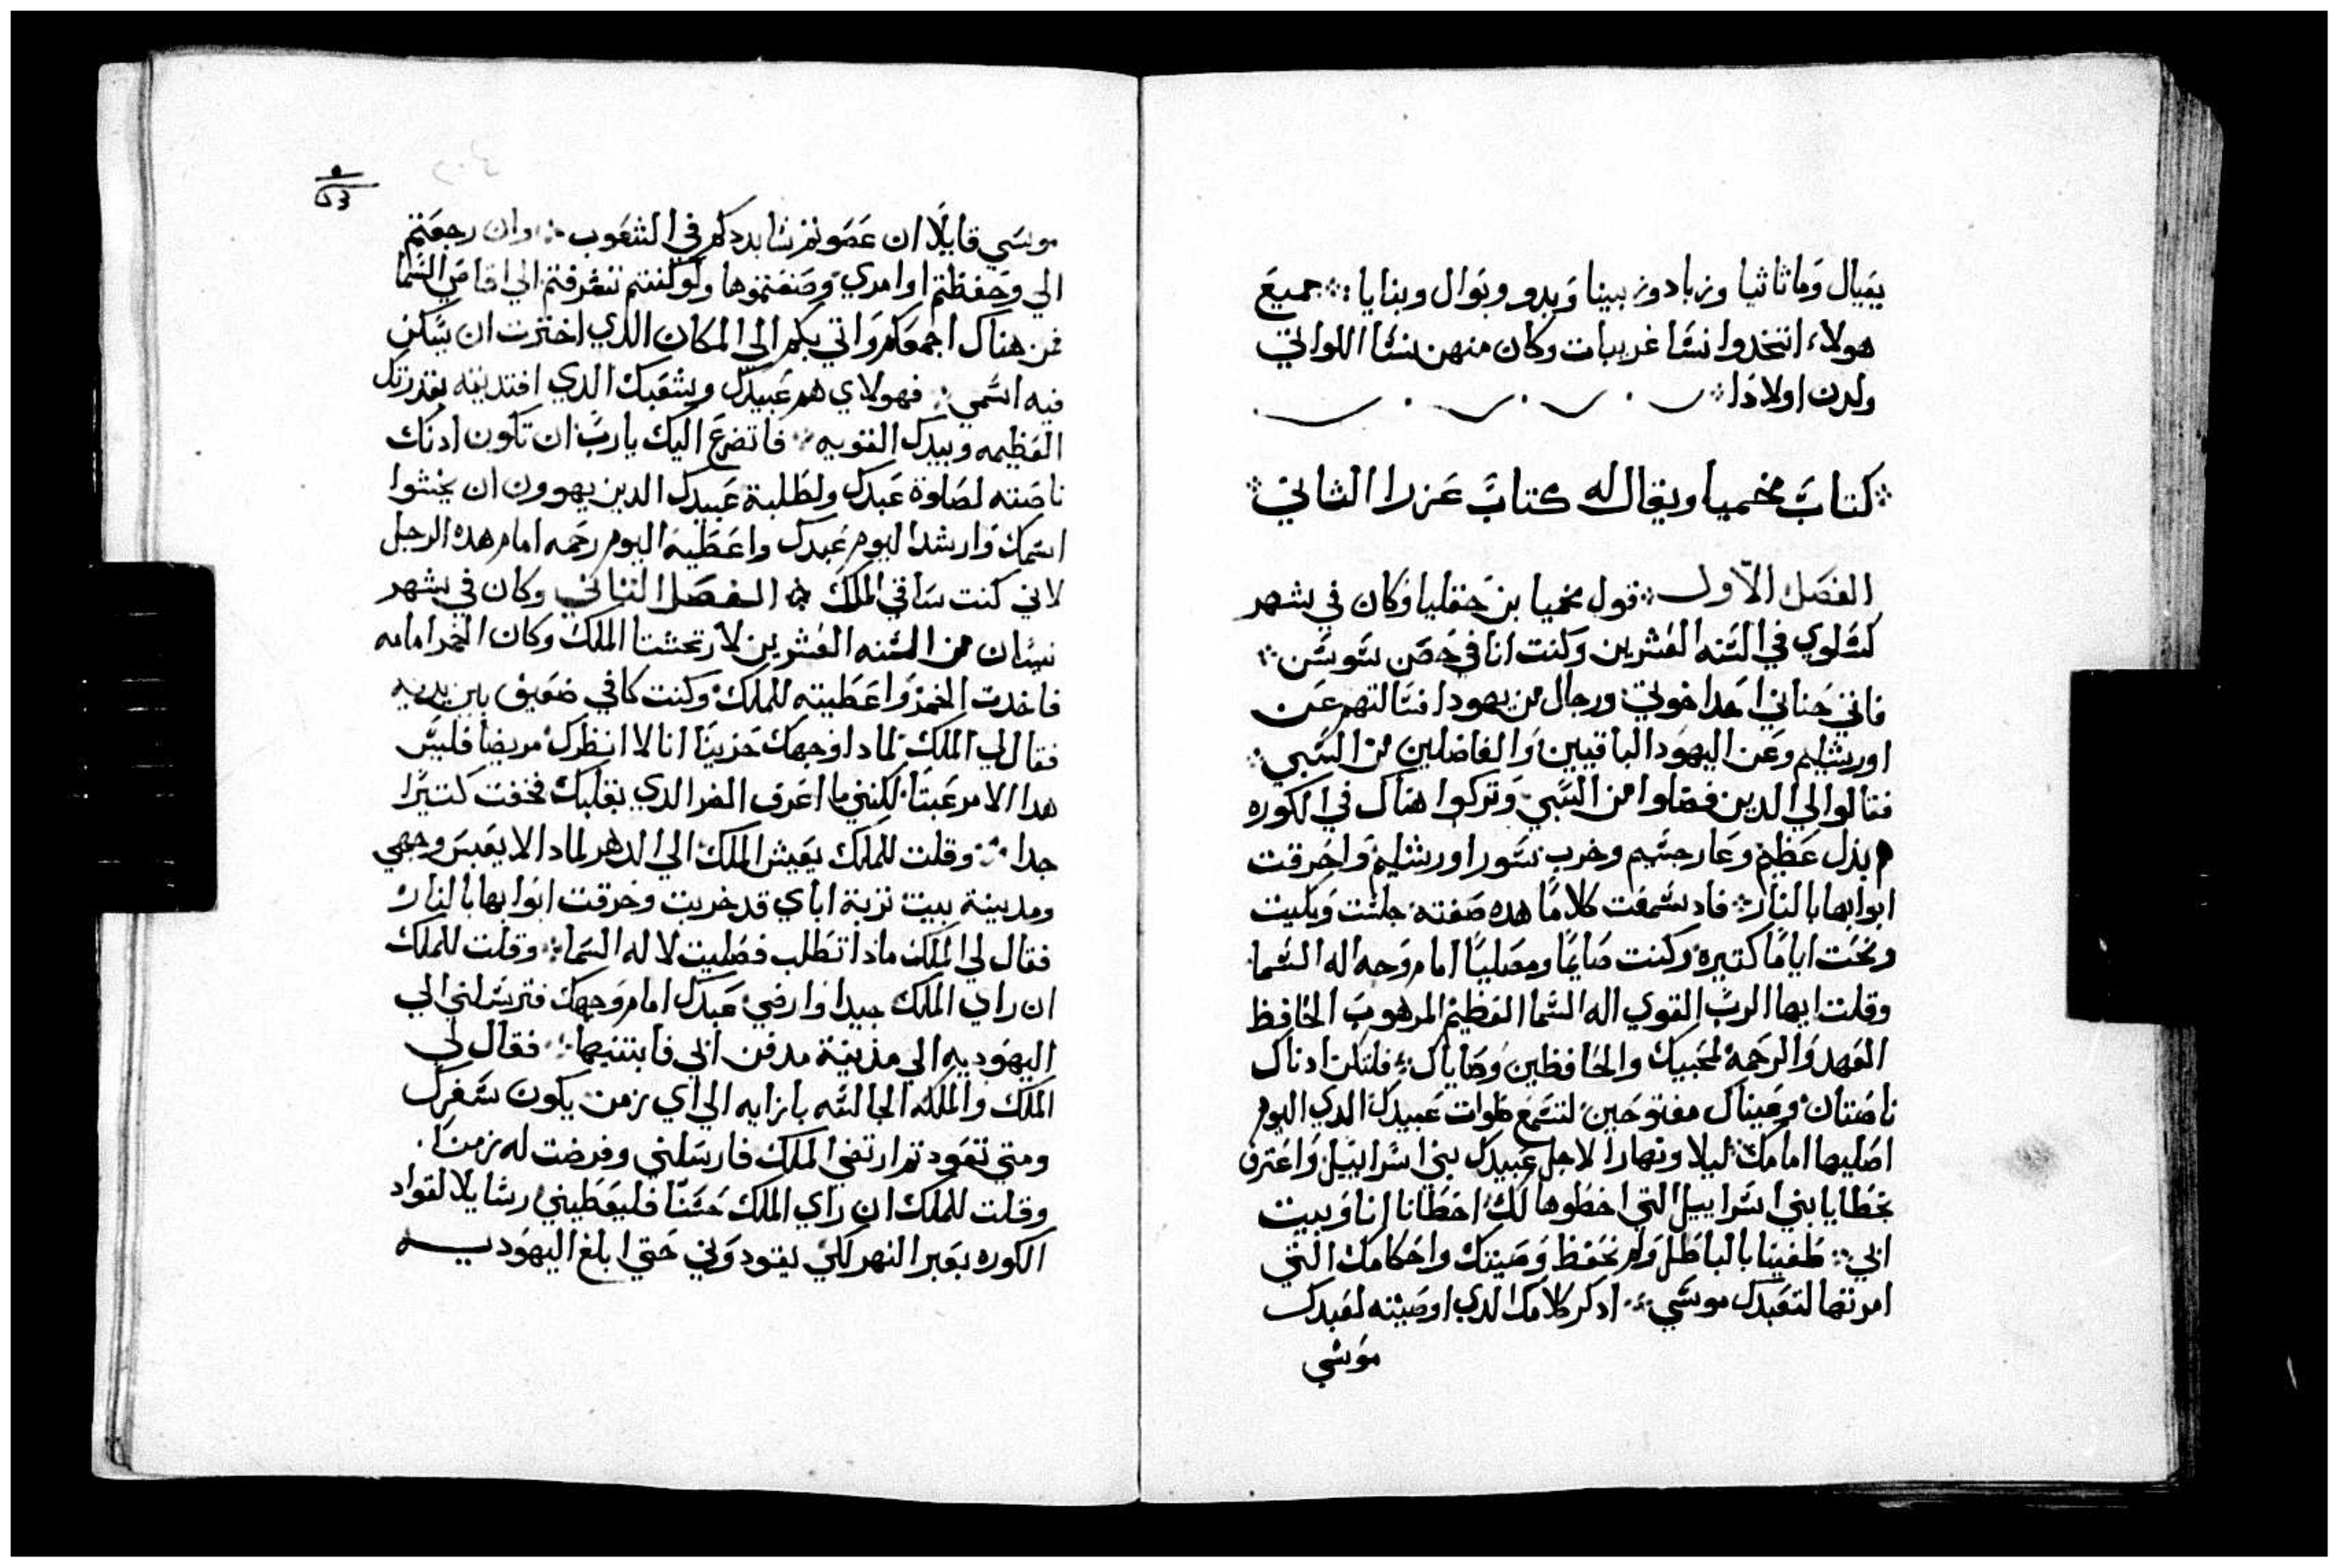 يعيال وماثاثيا وزبادوزبينا ويدو ويوال وبنايا ❖ جميع
هولاء اتخدوا نسا غريبات وكان منهن نسا اللواتي
ولدن اولادا ❖
❖ كتاب نحميا ويقال له كتاب عزرا الثاني ❖
الفصل الاول ❖ قول نحميا بن حقليا وكان في شهر
كسلوي في السنه العشرين وكنت انا في حصن سوسن ❖
فاتي حناني احد اخوتي ورجال من يهودا فسالتهم عن
اورشليم وعن اليهود الباقيين والفاضلين من السبي ❖
فقالوا لي الدين فضلوا من السبي وتركوا هناك في الكوره
هم بذل عظيم وعار جسيم وخرب سور اورشليم واحرقت
ابوابها بالنار ❖ فاد سمعت كلاما هده صفته جلست وبكيت
ونحت اياما كتيره وكنت صايما ومصليا امام وجه اله السما
وقلت ايها الرب القوي اله السما العظيم المرهوب الحافظ
العهد والرحمه لمحبيك والحافظين وصاياك ❖ فلتكن ادناك
ناصتان وعيناك مفتوحين لتسمع صلوات عبيدك الدي اليوم
اصليها امامك ليلا ونهارا لاجل عبيدك بني اسراييل واعترف
بخطايا بني اسراييل التي اخطوها لك اخطانا انا وبيت
ابي ❖ طغينا بالباطل ولم نحفظ وصيتك واحكامك التي
امرتها لتعبدك موسي ❖ ادكر كلامك الدي اوصيته لعبدك
موسي
٥
٤٥٣
موسي قايلا ان عصوتم سابددكم في الشعوب ❖ وان رجعتم
الي وحفظتم اوامري وصنعتموها ولو كنتم تفرقتم الي اقاصي السما
فمن هناك اجمعكم واتي بكم الي المكان الدي اخترت ان يسكن
فيه اسمي ❖ فهولاي هم عبيدك وشعبك الدي افتديته بقدرتك
العظيمه وبيدك القويه ❖ فاتضرع اليك يارب ان تكون ادنك
ناصته لصلوة عبدك ولطلبة عبيدك الدين يهوون ان يخشوا
اسمك وارشد اليوم عبدك واعطيه اليوم رحمه امام هده الرجل
لاني كنت ساقي الملك ❖ الفصل التاني وكان في شهر
نيسان من السنه العشرين لارتحشتا الملك وكان الخمر امامه
فاخدت الخمر واعطيته للملك وكنت كافي ضعيف بين يديه
فقال لي الملك لمادا وجهك حزينا انا لا انظرك مريضا فليس
هدا الامر عبتا لكنني ما اعرف الضر الدي بقلبك فخفت كتيرا
جدا ❖ وقلت للملك يعيش الملك الي الدهر لمادا لا يعبس وجهي
ومدينة بيت تربة اباي قد خربت وحرقت ابوابها بالنار
فقال لي الملك ماذا تطلب فصليت لاله السما ❖ وقلت للملك
ان راي الملك جيدا وارضي عبدك امام وجهك فترسلني الي
اليهوديه الي مذينة مدفن ابي فابتنيها ❖ فقال لي
الملك والملكه الجالسه بازايه الي اي زمن يكون سفرك
ومتي تعود تم ارتضي الملك فارسلني وفرضت له زمنا
وقلت للملك ان راي الملك حسنا فليعطيني رسايلا لقواد
الكوره بعبر النهر لكي يقودوني حتي ابلغ اليهوديه